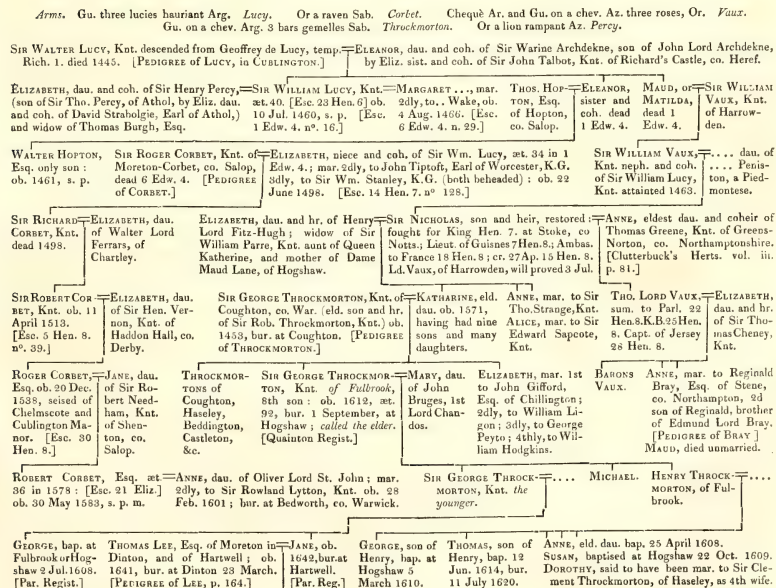 Arms. Gu. three lucies hauriant Arg. Lucy. Or a raven Sab. Corbet. Chequè Ar. and Gu. on a chev. Az. three roses, Or. Vaux.
Gu. on a chev. Arg. 3 bars gemelles Sab. Throckmorton. Or a lion rampant Az. Percy.
SIR WALTER LUCY, Knt. descended from Geoffrey de Lucy, temp.
Rich. 1. died 1445. [PEDIGREE OF LUCY, in CUBLINGTON.]
ELEANOR, dau. and coh. of Sir Warine Archdekne, son of John Lord Archdekne,
by Eliz. sist. and coh. of Sir John Talbot, Knt. of Richard's Castle, co. Heref.
ELIZABETH, dau. and coh. of Sir Henry Percy,
(son of Sir Tho. Percy, of Athol, by Eliz. dau.
and coh. of David Strabolgie, Earl of Athol,)
and widow of Thomas Burgh, Esq.
SIR WILLIAM LUCY, Knt.
æt. 40. [Esc. 23 Hen. 6] ob.
10 Jul. 1460, s. p. [Esc.
1 Edw. 4. nº. 16.]
MARGARET ..., mar.
2dly, to .. Wake, ob.
4 Aug. 1466. [Esc.
6 Edw. 4. n. 29.]
THOS. HOP-
TON, Esq.
of Hopton,
co. Salop.
ELEANOR,
sister and
coh. dead
1 Edw. 4.
MAUD, or
MATILDA,
dead 1
Edw. 4.
SIR WILLIAM
VAUX, Knt.
of Harrow-
den.
WALTER HOPTON,
Esq. only son :
ob. 1461, s. p.
SIR ROGER CORBET, Knt. of
Moreton-Corbet, co. Salop,
dead 6 Edw. 4. [PEDIGREE
of CORBET.]
ELIZABETH, niece and coh. of Sir Wm. Lucy, æt. 34 in 1
Edw. 4.; mar. 2dly, to John Tiptoft, Earl of Worcester, K.G.
3dly, to Sir Wm. Stanley, K.G. (both beheaded) : ob. 22
June 1498. [Esc. 14 Hen. 7. nº 128.]
SIR WILLIAM VAUX,
Knt. neph. and coh.
of Sir William Lucy,
Knt. attainted 1463.
.... dau. of
.... Penis-
ton, a Pied-
montese.
SIR RICHARD
CORBET, Knt.
dead 1498.
ELIZABETH, dau.
of Walter Lord
Ferrars, of
Chartley.
ELIZABETH, dau. and hr. of Henry
Lord Fitz-Hugh; widow of Sir
William Parre, Knt. aunt of Queen
Katherine, and mother of Dame
Maud Lane, of Hogshaw.
SIR NICHOLAS, son and heir, restored :
fought for King Hen. 7. at Stoke, co
Notts.; Lieut. of Guisnes 7 Hen. 8.; Ambas.
to France 18 Hen. 8 ; cr. 27 Ap. 15 Hen. 8.
Ld. Vaux, of Harrowden, will proved 3 Jul.
ANNE, eldest dau. and coheir of
Thomas Greene, Knt. of Greens-
Norton, co. Northamptonshire.
[Clutterbuck's Herts. vol. iii.
p. 81.]
SIR ROBERT COR-
BET, Knt. ob. 11
April 1513.
[Esc. 5 Hen. 8.
nº. 39.]
ELIZABETH, dau.
of Sir Hen. Ver-
non, Knt. of
Haddon Hall, co.
Derby.
SIR GEORGE THROCKMORTON, Knt. of
Coughton, co. War. (eld. son and hr.
of Sir Rob. Throckmorton, Knt.) ob.
1453, bur. at Coughton. [PEDIGREE
of THROCKMORTON.]
KATHARINE, eld.
dau. ob. 1571,
having had nine
sons and many
daughters.
ANNE, mar. to Sir
Tho. Strange, Knt.
ALICE, mar. to Sir
Edward Sapcote,
Knt.
THO. LORD VAUX,
sum. to Parl. 22
Hen. 8. K.B. 25 Hen.
8. Capt. of Jersey
26 Hen. 8.
ELIZABETH,
dau. and hr.
of Sir Tho-
mas Cheney,
Knt.
ROGER CORBET,
Esq. ob. 20 Dec.
1538, seised of
Chelmscote and
Cublington Ma-
nor. [Esc. 30
Hen. 8.]
JANE, dau.
of Sir Ro-
bert Need-
ham, Knt.
of Shen-
ton, co.
Salop.
THROCKMOR-
TONS of
Coughton,
Haseley,
Beddington,
Castleton,
&c.
SIR GEORGE THROCKMOR-
TON, Knt. of Fulbrook,
8th son : ob. 1612, æt.
92, bur. 1 September, at
Hogshaw ; called the elder.
[Quainton Regist.]
MARY, dau.
of John
Bruges, 1st
Lord Chan-
dos.
ELIZABETH, mar. 1st
to John Gifford,
Esq. of Chillington ;
2dly, to William Li-
gon ; 3dly, to George
Peyto ; 4thly, to Wil-
liam Hodgkins.
BARONS
VAUX.
ANNE, mar. to Reginald
Bray, Esq. of Stene,
co. Northampton, 2d
son of Reginald, brother
of Edmund Lord Bray.
[PEDIGREE OF BRAY ]
MAUD, died unmarried.
ROBERT CORBET, Esq. æt.
36 in 1578 : [Esc. 21 Eliz.]
ob. 30 May 1583, s. p. m.
ANNE, dau. of Oliver Lord St. John ; mar.
2dly, to Sir Rowland Lytton, Knt. ob. 28
Feb. 1601 ; bur. at Bedworth, co. Warwick.
SIR GEORGE THROCK-
MORTON, Knt. the
younger.
....
MICHAEL.
HENRY THROCK-
MORTON, of Ful-
brook.
....
GEORGE, bap. at
Fulbrook or Hog-
shaw 2 Jul. 1608.
[Par. Regist.]
THOMAS LEE, Esq. of Moreton in
Dinton, and of Hartwell ; ob.
1641, bur. at Dinton 23 March.
[PEDIGREE OF LEE, p. 164.]
JANE, ob.
1642, bur. at
Hartwell.
[Par. Reg.]
GEORGE, son of
Henry, bap. at
Hogshaw 5
March 1610.
THOMAS, son of
Henry, bap. 12
Jun. 1614, bur.
11 July 1620.
ANNE, eld. dau. bap. 25 April 1608.
SUSAN, baptised at Hogshaw 22 Oct. 1609.
DOROTHY, said to have been mar. to Sir Cle-
ment Throckmorton, of Haseley, as 4th wife